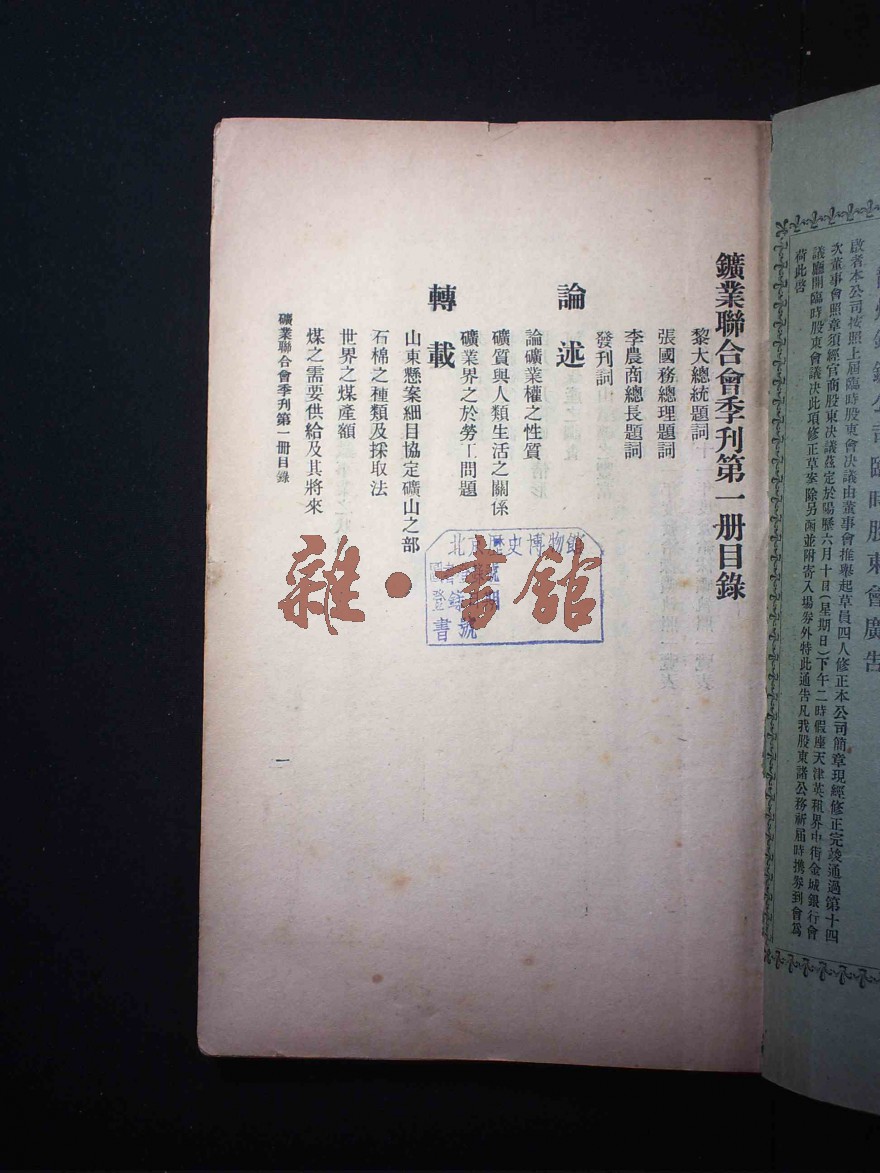 啟者本公司按照上屆臨時股東會決議由董事會推舉起草員四人修正本公司簡章現經修正完竣通過第十四
次董事會照章須經官商股東決議茲定於陽曆六月十日(星期日)下午二時假座天津英租界中街金城銀行會
議廳開臨時股東會議决此項修正草案除另函並附寄入場券外特此通告凡我股東諸公務祈屆時携券到會爲
荷此啓
鑛業聯合會季刊第一册目錄
黎大總統題詞
張國務總理題詞
李農商總長題詞
發刊詞
論述
論礦業權之性質
礦質與人類生活之關係
礦業界之於勞工問題
轉載
山東懸案細目協定礦山之部
石棉之種類及採取法
世界之煤產額
煤之需要供給及其將來
礦業聯合會季刊第一冊目錄
一
北京歷史博物館
圖書
登錄
書號
雜·書館